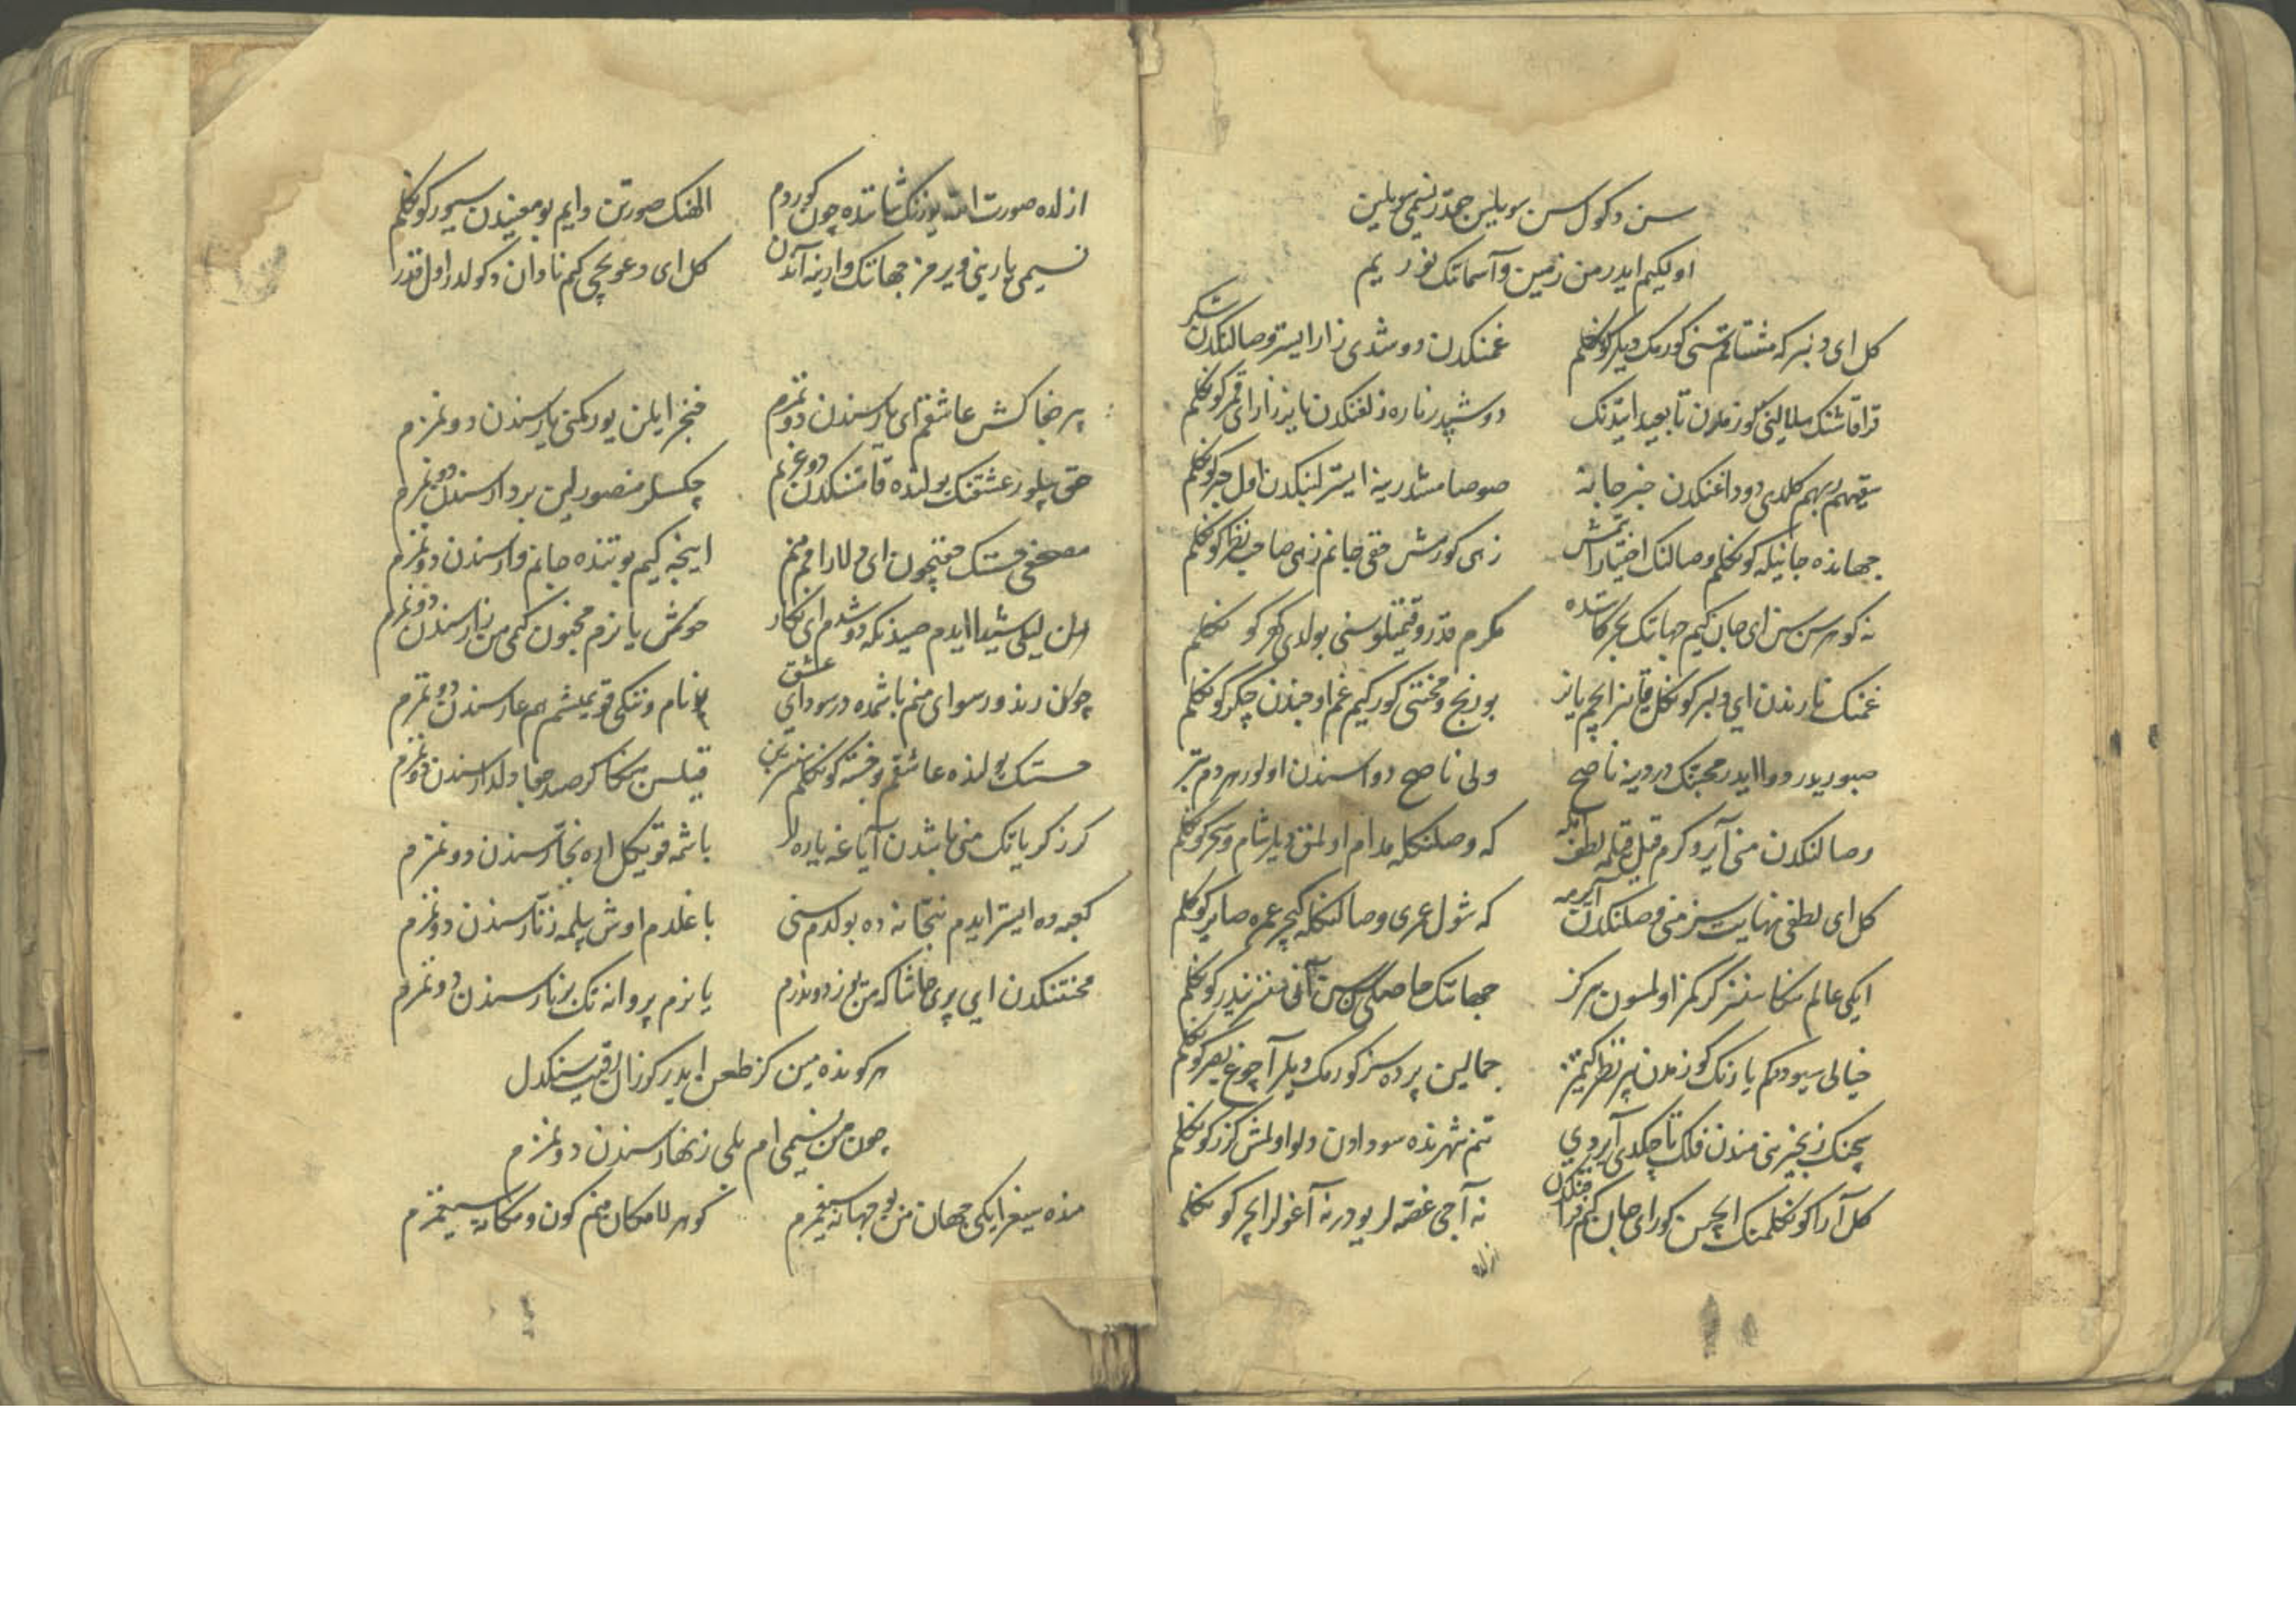 سن دکول سن سویلین جمدر نسیمی سویلین
اولکیم ایدر من زمین و آسمانک نوریم
کل ای دلبر که مشتاقم سنی کورمک دیلر کوکلم غمنکدن دوشدی زارا ایستر وصالنکدن شکر
قرا قاشنک هلالینی کوزمدن تا بعید ایتدنک دوشپدر ناره زلفنکدن یانر زارا ای قمر کوکلم
کلدی دوداغنکدن خبر جانه صوصامشدر ینه ایستر لبنکدن اول کوکلم
جهانده جانیله کوکلم وصالنک اختیار ایتمش زهی کورمش حقی جانم زهی صاحب نظر کوکلم
نه کوهرسن سن ای جان کیم جهانک بحر کاننده مکرم قدر و قیمتلو سنی بولدی کهر کوکلم
غمنک نارندن ای دلبر کوکل قاینر ایچم یانر بو رنج و محنتی کورکیم غم اوجندن چکر کوکلم
صبوریدر دوا ایدر محبتک دردینه ناصح ولی ناصح دواسندن اولور هردم بتر
وصالنکدن منی آیرو کرم قیل قیلمه لطف ایله که وصلنکله مدام اولمق دیلر شام و سحر کوکلم
کل ای لطفی نهایت سز منی وصلنکدن آیرمه که شول عمری وصالنکله کیچر عمره صایر کوکلم
ایکی عالم سکا سنسز کرکمز اولمسون هرکز جهانک حاصلی سن سن آنی سنسز نیدر کوکلم
خیالی سیوردکم یارنک کوزمدن بیر نظر کیتمز جمالین پرده سز کورمک دیلر آچوغ بصر کوکلم
سچنک زنجیرینی مندن فلک تا چکدی آیردی تنم شهرنده سودادن دلو اولمش کزر کوکلم
کل آرا کوکلمنک ایچن کور ای جان کیم فراقنکدن نه آجی غصه لر یودر نه آغولر ایچر کوکلم
ازلده
ازلده صورت الله یوزنک شاننده چون کوردم الهنک صورتن دایم بو معنیدن سیور کوکلم
نسیمی یارینی ویرمز جهانک وارینه آندن کل ای دعویچی کم نادان دکولدر اول قدر
بیر جفاکش عاشقم ای یار سندن دونمزم خنجر ایلن یورکمی یار سندن دونمزم
حق بیلور عشقنک یولنده قامتنکدن دونمزم چکسلر منصورلین بردار سندن دونمزم
مصحفی حسنک حقیچون ای دلارامم منم اینجه کیم بو تنده جانم وار سندن دونمزم
اول لیلی شیدا ایدم صیدنکه دوشدم ای نکار خوش یانرم مجنون کمی من زار سندن دونمزم
چون رند و رسوای منم باشمده در سودای عشق نام و ننکی قویمیشم هم عار سندن دونمزم
حسنک یولنده عاشقم و خسته کوکلم قیلسن سکا کر صد جفا دلدار سندن دونمزم
کر زکریا تک منی باشدن آیاغه یاره لر باشمه قویکل اره نجار سندن دونمزم
کعبه ده ایستر ایدم بتخانه ده بولدم سنی باغلدم اوش بیلمه زنار سندن دونمزم
محنتنکدن ای پری حاشا که من یوز دوندرم یانرم پروانه تک بر نار سندن دونمزم
هر کونده مین کز طعن ایدر کوزال رقیب سنکدل
چون من نسیمی ام بلی زنهار سندن دونمزم
منده سیغر ایکی جهان من بو جهانه سیغمزم کوهر لامکان منم کون و مکانه سیغمزم